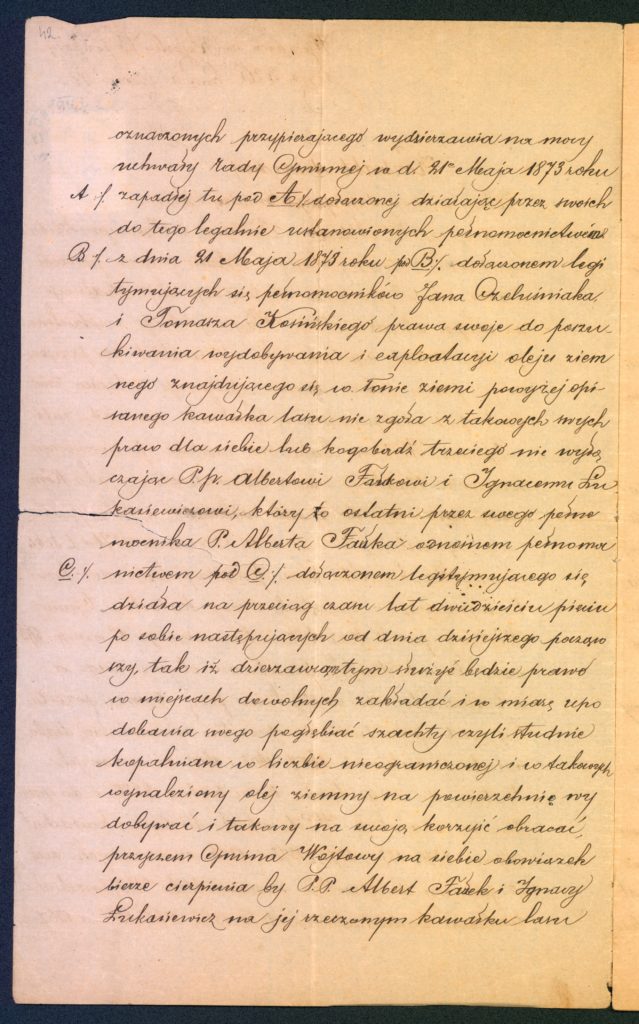 42.
oznaczonych przypierającego wydzierzawia na mocy
uchwały Rady Gminnej w d. 21go Maja 1873 roku
A /. zapadłej tu pod A /. dołączonej działając przez swoich
do tego legalnie ustanowionych pełnomocnictwem
B /. z dnia 21 Maja 1873 roku pod B /. dołączonem legi
tymujących się pełnomocników Jana Czeluśniaka
i Tomasza Kosińskiego prawa swoje do poszu
kiwania wydobywania i exploatacyi oleju ziem
nego znajdującego się w łonie ziemi powyżej opi
sanego kawałka lasu nic zgoła z takowych swych
praw dla siebie lub kogobądź trzeciego nie wyłą
czając P.p. Albertowi Faukowi i Ignacemu Łu
kasiewiczowi, który to ostatni przez swego pełno
mocnika P. Alberta Fauka pełnomo
C /. nictwem pod C /. dołączonem legitymującego się
działa na przeciąg czasu lat dwudziestu pięciu
po sobie następujących od dnia dzisiejszego począw
szy, tak iż dzierzawcom tym służyć będzie prawo
w miejscach dowolnych zakładać i w miarę upo
dobania swego pogłębiać szachty czyli studnie
kopalniane w liczbie nieograniczonej i w takowych
wynaleziony olej ziemny na powierzchnię wy
dobywać i takowy na swoją korzyść obracać,
przyczem Gmina Wójtowy na siebie obowiązek
bierze cierpienia by P.P. Albert Fauk i Ignacy
Łukasiewicz na jej rzeczonym kawałku lasu